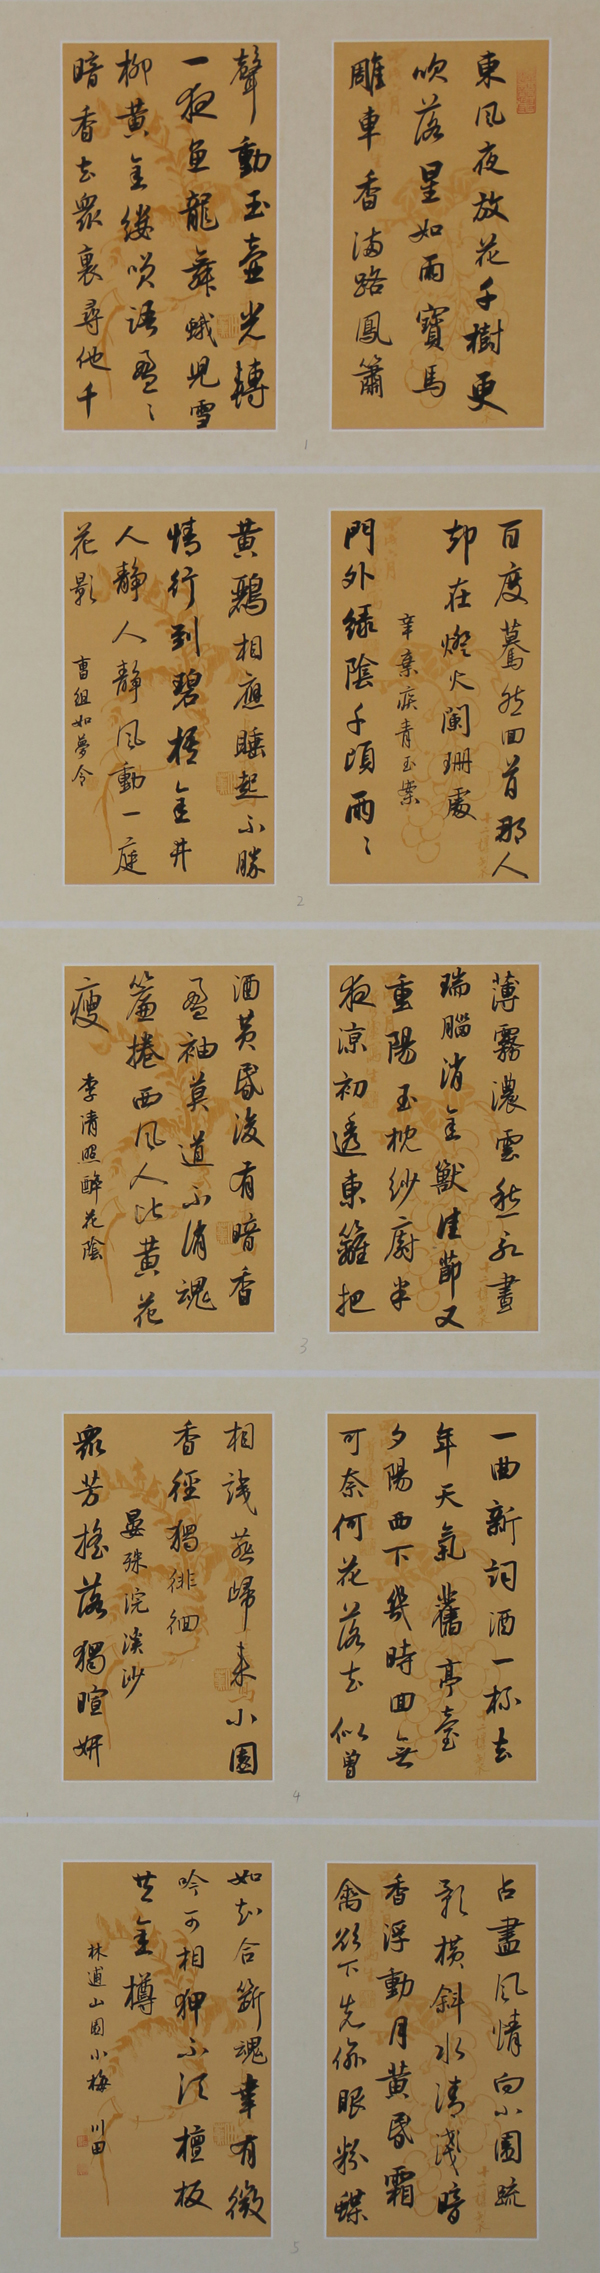 東風夜放花千樹更
吹落星如雨寶馬
雕車香滿路鳳簫
聲動玉壺光轉
一夜魚龍舞蛾兒雪
柳黃金縷笑語盈〻
暗香去眾裏尋他千
1
百度驀然回首那人
却在燈火闌珊處
辛棄疾青玉案
門外綠陰千頃兩〻
黃鸝相應睡起不勝
情行到碧梧金井
人靜人靜風動一庭
花影 曹組如夢令
2
薄霧濃雲愁永晝
瑞腦消金獸佳節又
重陽玉枕紗廚半
夜涼初透東籬把
酒黃昏後有暗香
盈袖莫道不消魂
簾捲西風人比黃花
瘦 李清照醉花陰
3
一曲新詞酒一杯去
年天氣舊亭臺
夕陽西下幾時回無
可奈何花落去似曾
相識燕歸來小園
香徑獨徘徊
晏殊浣溪沙
眾芳搖落獨暄妍
4
占盡風情向小園疏
影橫斜水清淺暗
香浮動月黃昏霜
禽欲下先偷眼粉蝶
如知合斷魂幸有微
吟可相狎不須檀板
共金樽
林逋山園小梅 川田
5